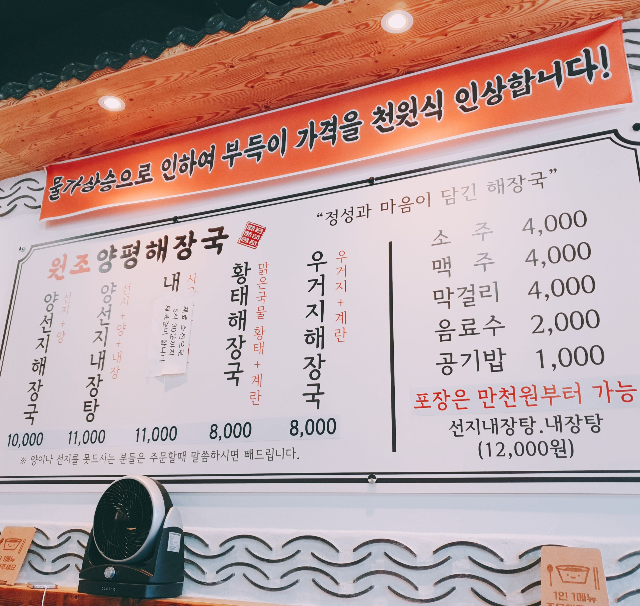 물가상승으로 인하여 부득이 가격을 천원식 인상합니다!
원조양평해장국
"정성과 마음이 담긴 해장국"
양선지해장국
선지+양
10,000
양선지내장탕
선지+양+내장
11,000
내
11,000
황태해장국
맑은국물 황태+계란
8,000
우거지해장국
우거지+계란
8,000
※ 양이나 선지를 못드시는 분들은 주문할때 말씀하시면 빼드립니다.
소 주 4,000
맥 주 4,000
막걸리 4,000
음료수 2,000
공기밥 1,000
포장은 만천원부터 가능
선지내장탕.내장탕
(12,000원)
1인 1메뉴